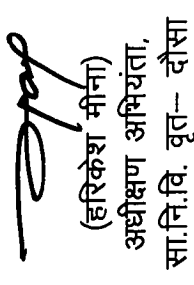 (हरिकेश मीना)
अधीक्षण अभियंता,
सा.नि.वि. वृत– दौसा